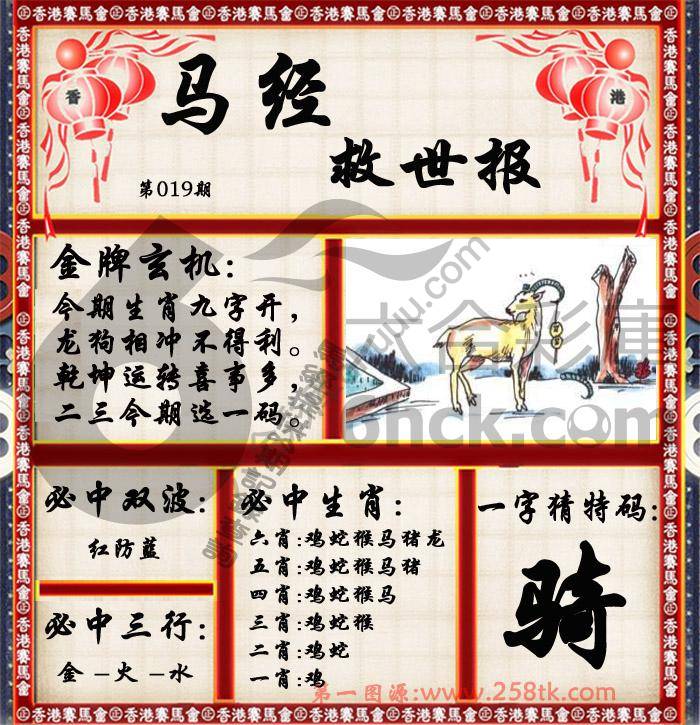 香港賽馬會
香
港
马经
救世报
第019期
金牌玄机:
今期生肖九字开，
龙狗相冲不得利。
乾坤运转喜事多，
二三今期选一码。
六合彩庫
onck.com
必中双波:
红防蓝
必中三行:
金–火–水
必中生肖:
六肖:鸡蛇猴马猪龙
五肖:鸡蛇猴马猪
四肖:鸡蛇猴马
三肖:鸡蛇猴
二肖:鸡蛇
一肖:鸡
一字猜特码:
骑
第一图源:www.258tk.com